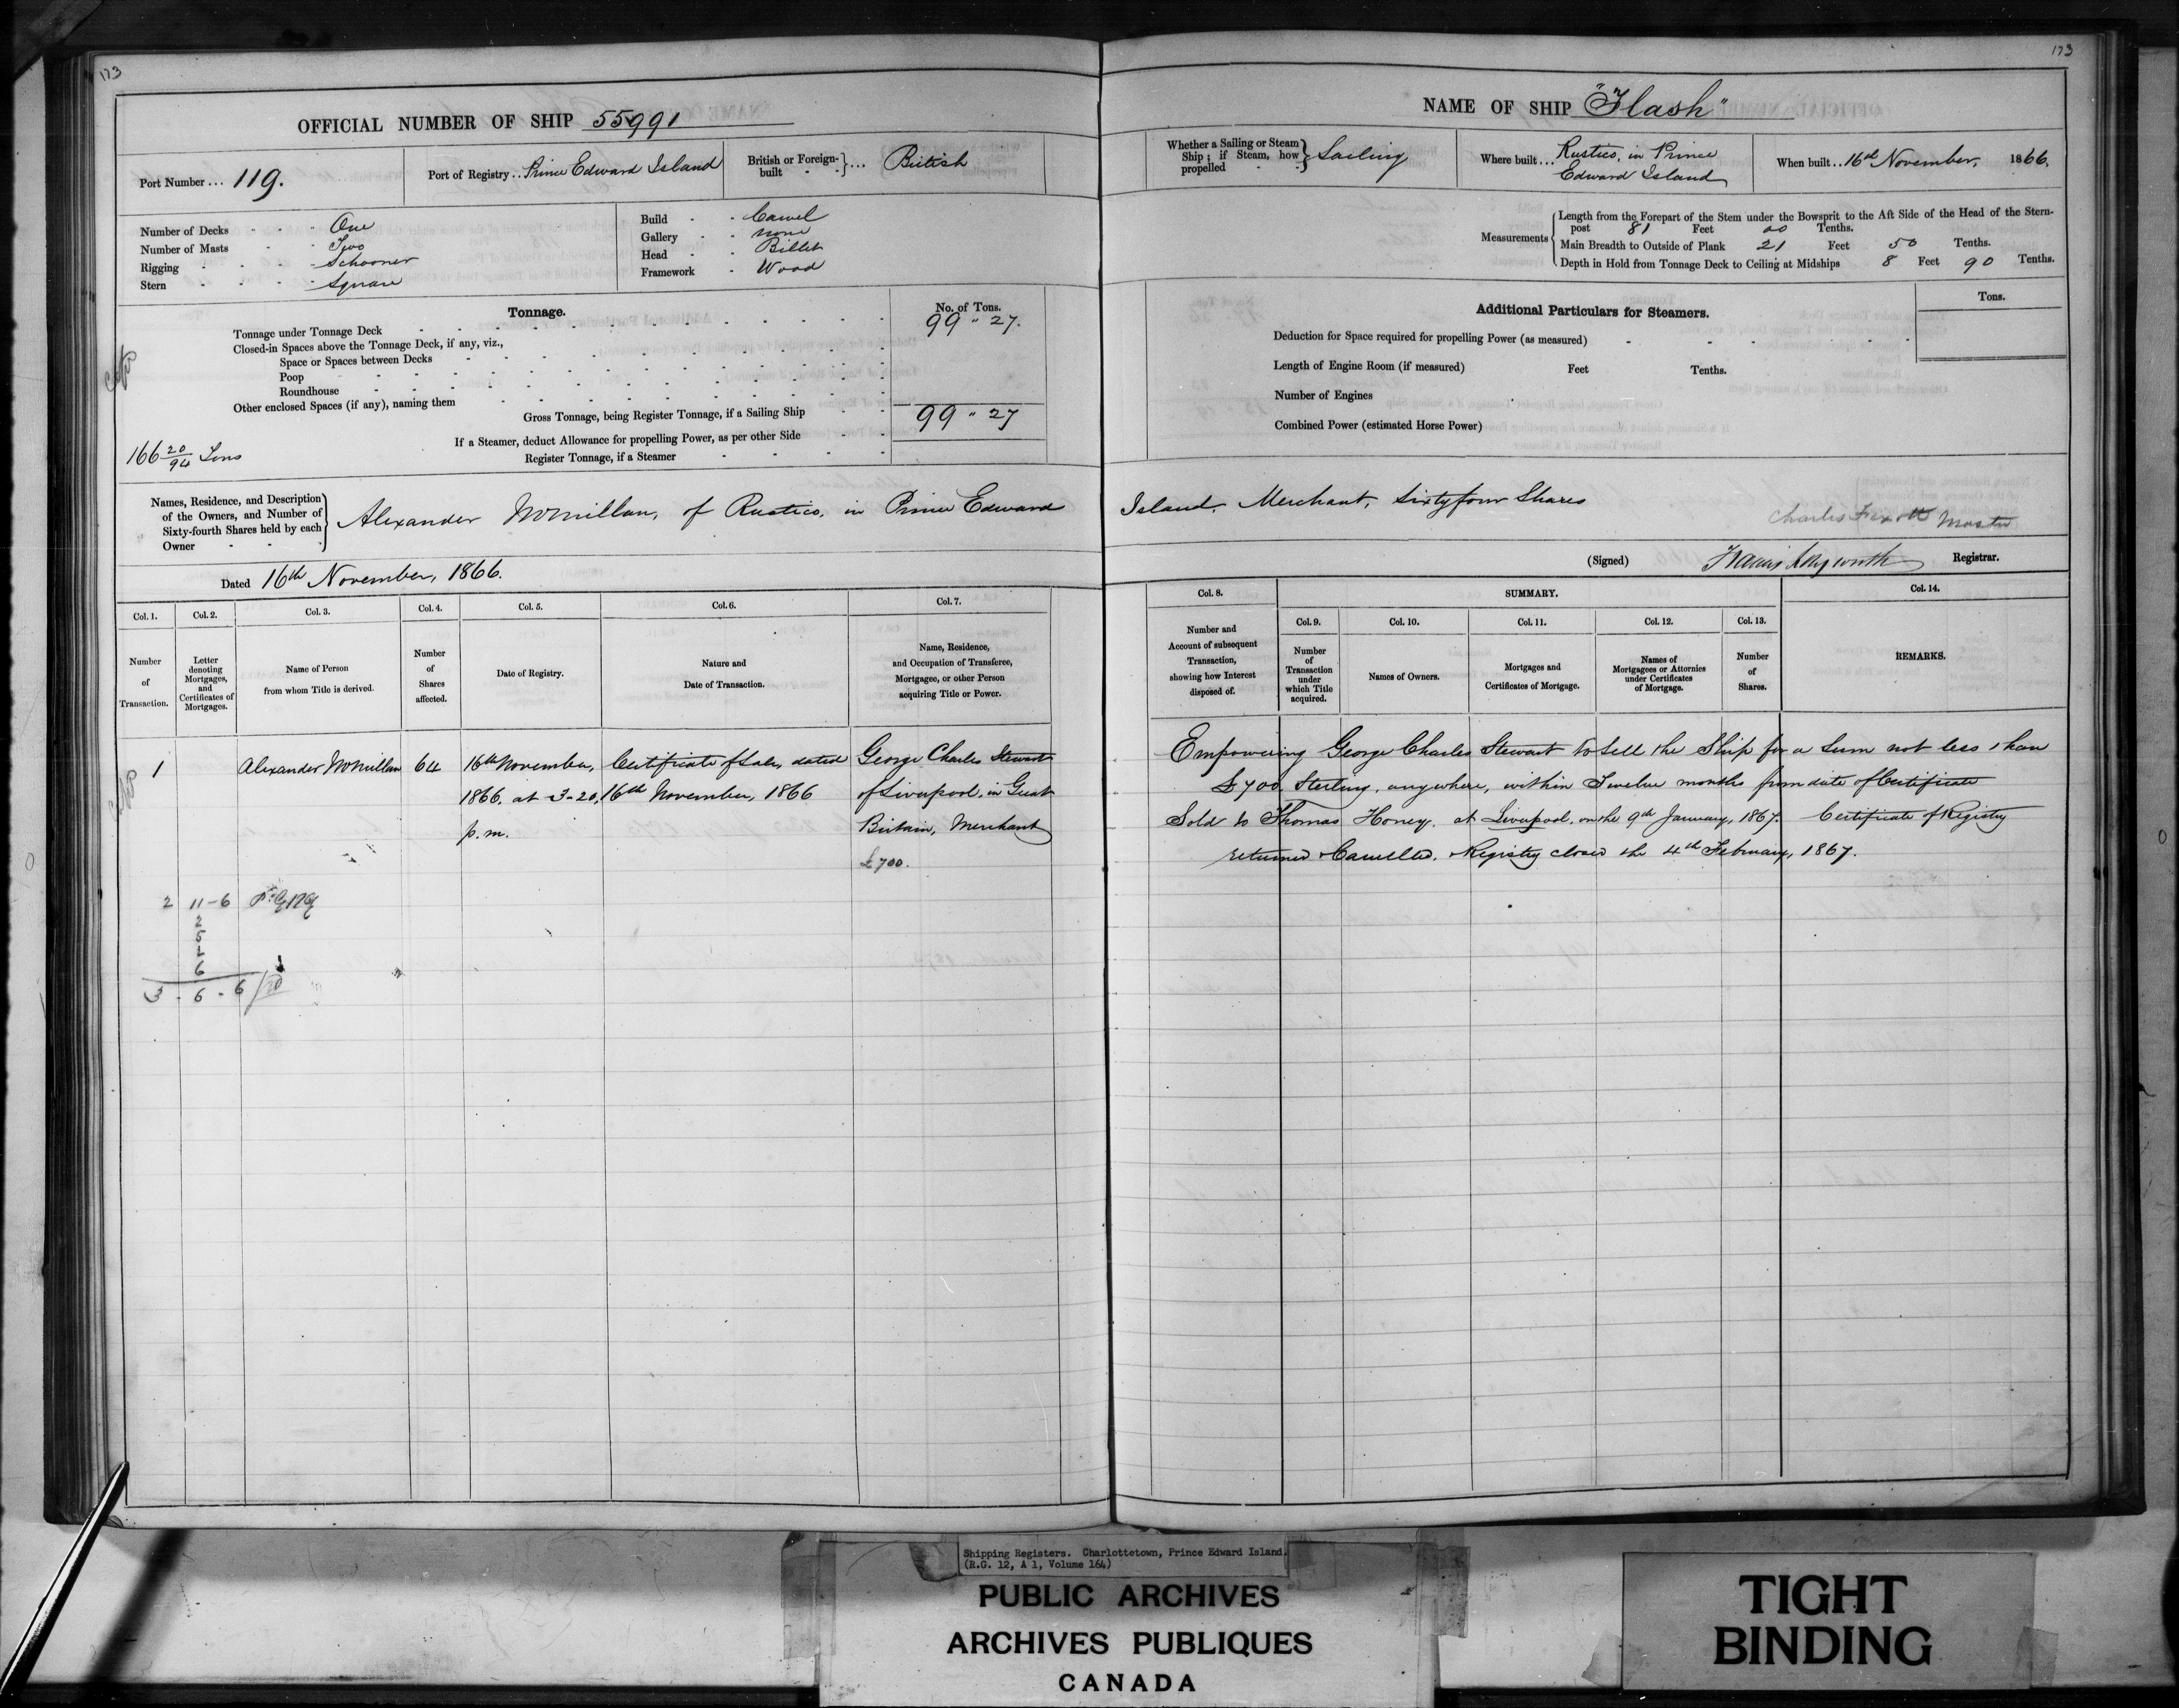 173
OFFICIAL NUMBER OF SHIP 55991
Port Number ... 119.
Port of Registry .. Prince Edward Island
British or Foreign-built } ... British
Number of Decks - - - One
Number of Masts - - Two
Rigging - - - - Schooner
Stern - - - - Square
Build - - Carvel
Gallery - - none
Head - - Billet
Framework - Wood
Tonnage.
No. of Tons.
Tonnage under Tonnage Deck 99 " 27.
Closed-in Spaces above the Tonnage Deck, if any, viz.,
Space or Spaces between Decks
Poop
Roundhouse
Other enclosed Spaces (if any), naming them
Gross Tonnage, being Register Tonnage, if a Sailing Ship 99 " 27
If a Steamer, deduct Allowance for propelling Power, as per other Side
Register Tonnage, if a Steamer
166 20/94 Tons
Names, Residence, and Description
of the Owners, and Number of
Sixty-fourth Shares held by each
Owner - - -
Alexander McMillan, of Rustico, in Prince Edward
Dated 16th November, 1866.
Col. 1.
Number
of
Transaction.
Col. 2.
Letter
denoting
Mortgages,
and
Certificates of
Mortgages.
Col. 3.
Name of Person
from whom Title is derived.
Col. 4.
Number
of
Shares
affected.
Col. 5.
Date of Registry.
Col. 6.
Nature and
Date of Transaction.
Col. 7.
Name, Residence,
and Occupation of Transferee,
Mortgagee, or other Person
acquiring Title or Power.
1
Alexander McMillan
64
16th November,
1866. at 3-20,
p.m.
Certificate of Sale, dated
16th November, 1866
George Charles Stewart
of Liverpool, in Great
Britain, Merchant
£700.
2 11-6
2
5
1
6
3 - 6 - 6
173
NAME OF SHIP "Flash"
Whether a Sailing or Steam
Ship; if Steam, how
propelled - -
Sailing
Where built ... Rustico, in Prince
Edward Island
When built .. 16th November, 1866.
Measurements
Length from the Forepart of the Stem under the Bowsprit to the Aft Side of the Head of the Stern-
post 81 Feet 00 Tenths.
Main Breadth to Outside of Plank 21 Feet 50 Tenths.
Depth in Hold from Tonnage Deck to Ceiling at Midships 8 Feet 90 Tenths.
Additional Particulars for Steamers.
Tons.
Deduction for Space required for propelling Power (as measured)
Length of Engine Room (if measured) Feet Tenths.
Number of Engines
Combined Power (estimated Horse Power)
Island, Merchant, Sixty four Shares
Charles Master
(Signed) Francis Longworth Registrar.
Col. 8.
Number and
Account of subsequent
Transaction,
showing how Interest
disposed of.
SUMMARY.
Col. 9.
Number
of
Transaction
under
which Title
acquired.
Col. 10.
Names of Owners.
Col. 11.
Mortgages and
Certificates of Mortgage.
Col. 12.
Names of
Mortgagees or Attornies
under Certificates
of Mortgage.
Col. 13.
Number
of
Shares.
Col. 14.
REMARKS.
Empowering George Charles Stewart to Sell the Ship for a Sum not less than
£700, Sterling, anywhere, within Twelve months from date of Certificate
Sold to Thomas Honey, at Liverpool, on the 9th January, 1867. Certificate of Registry
returned Cancelled. Registry closed the 4th February, 1867.
Shipping Registers. Charlottetown, Prince Edward Island.
(R.G. 12, A 1, Volume 164)
PUBLIC ARCHIVES
ARCHIVES PUBLIQUES
CANADA
TIGHT
BINDING